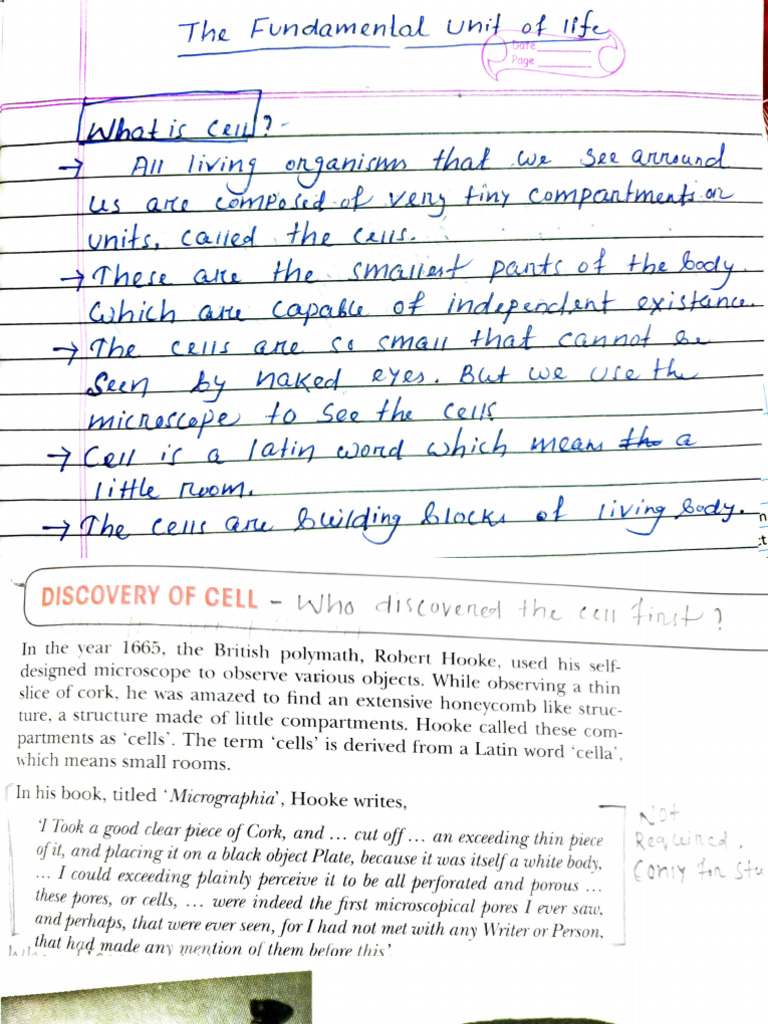 The Fundamental Unit of life
Date
Page
What is Cell? -
→ All living organisms that we see arround
us are composed of very tiny compartments or
units, called the cells.
→ These are the smallest parts of the body
which are capable of independent existance.
→ The cells are so small that cannot be
seen by naked eyes. But we use the
microscope to see the cells
→ Cell is a latin word which means a
little room.
→ The cells are building blocks of living body.
DISCOVERY OF CELL - Who discovered the cell first?
In the year 1665, the British polymath, Robert Hooke, used his self-
designed microscope to observe various objects. While observing a thin
slice of cork, he was amazed to find an extensive honeycomb like struc-
ture, a structure made of little compartments. Hooke called these com-
partments as 'cells'. The term 'cells' is derived from a Latin word 'cella',
which means small rooms.
In his book, titled 'Micrographia', Hooke writes,
'I Took a good clear piece of Cork, and ... cut off ... an exceeding thin piece
of it, and placing it on a black object Plate, because it was itself a white body,
... I could exceeding plainly perceive it to be all perforated and porous ...
these pores, or cells, ... were indeed the first microscopical pores I ever saw,
and perhaps, that were ever seen, for I had not met with any Writer or Person,
that had made any mention of them before this'
Not
Required.
(only for stu